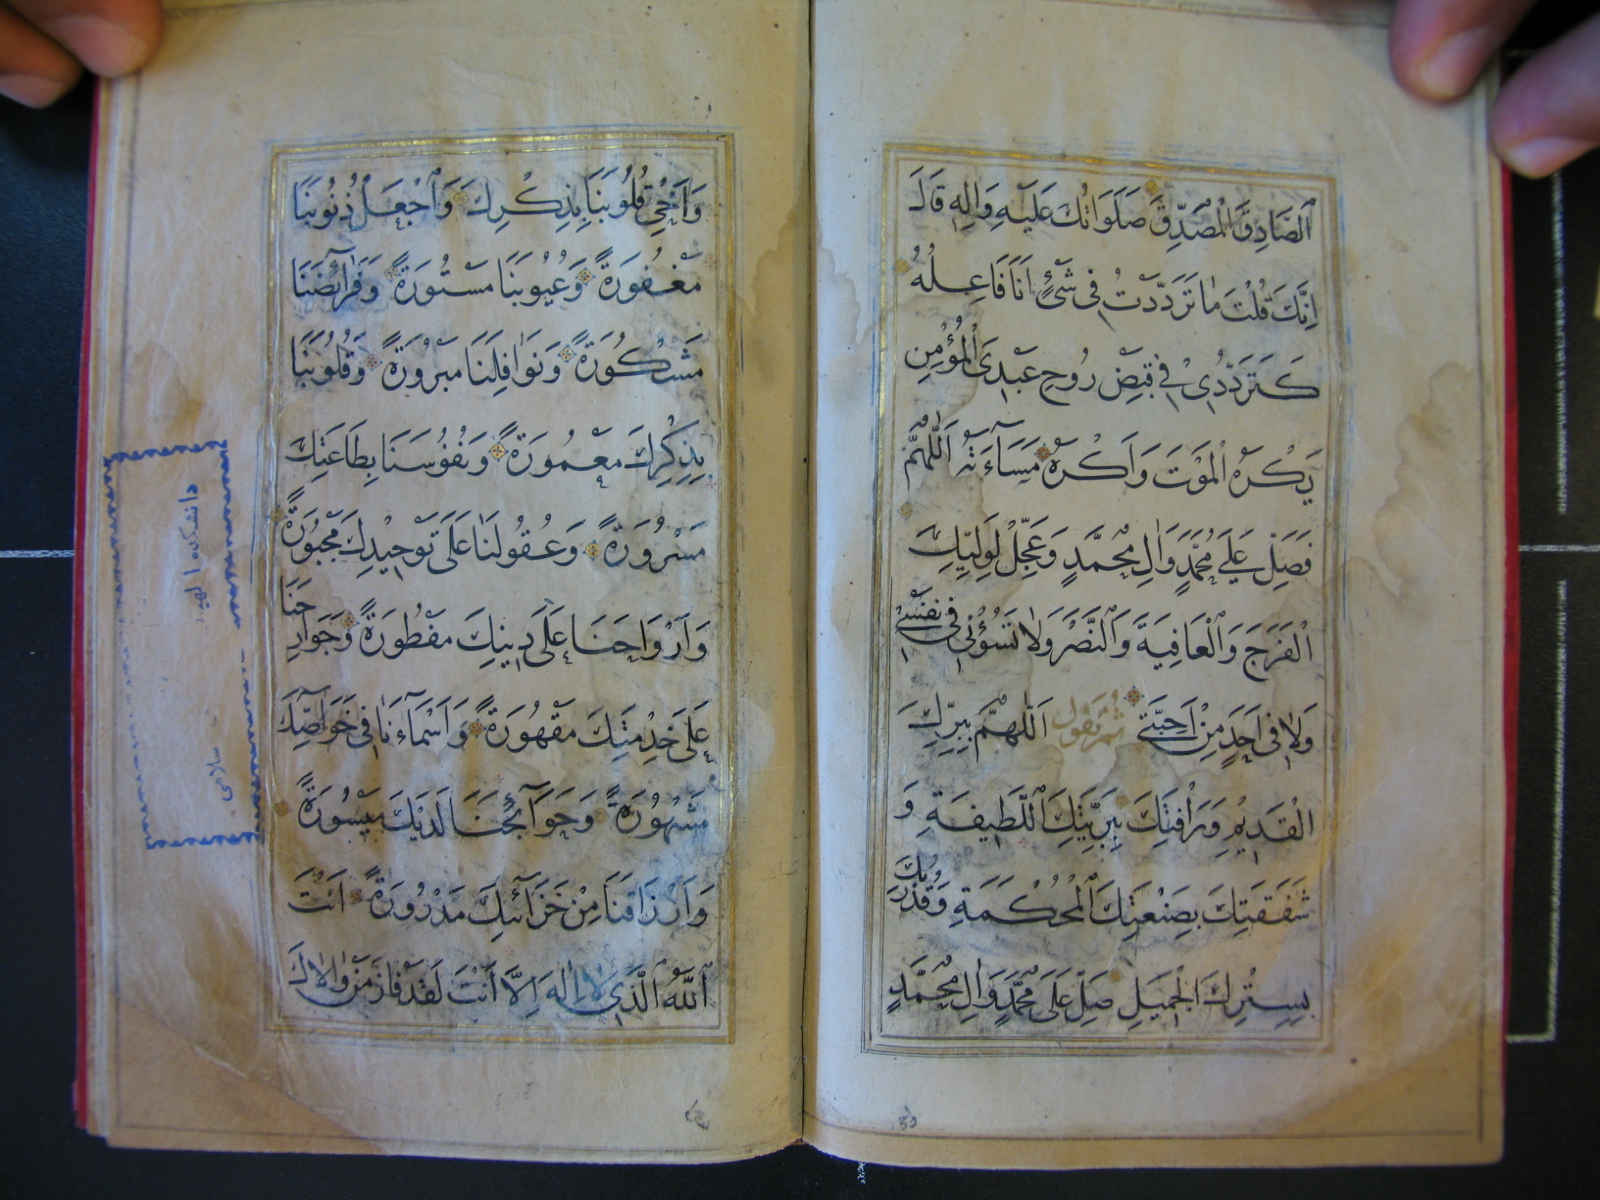 اَلصَّادِقَ الْمُصَدِّقَ صَلَوَاتُكَ عَلَيْهِ وَاٰلِهِ قَالَ
اِنَّكَ قُلْتَ مَا تَرَدَّدْتُ فِي شَيْءٍ اَنَا فَاعِلُهُ
كَتَرَدُّدِي فِي قَبْضِ رُوحِ عَبْدِيَ الْمُؤْمِنِ
يَكْرَهُ الْمَوْتَ وَاَكْرَهُ مَسَآءَتَهُ اَللّٰهُمَّ
فَصَلِّ عَلٰى مُحَمَّدٍ وَاٰلِ مُحَمَّدٍ وَعَجِّلْ لِوَلِيِّكَ
الْفَرَجَ وَالْعَافِيَةَ وَالنَّصْرَ وَلَا تَسُؤْنِي فِي نَفْسِي
وَلَا فِي اَحَدٍ مِنْ اَحِبَّتِي ثم تقول اَللّٰهُمَّ بِبِرِّكَ
الْقَدِيمِ وَرَاْفَتِكَ بِبَرِيَّتِكَ اللَّطِيفَةِ وَ
شَفَقَتِكَ بِصَنْعَتِكَ الْمُحْكَمَةِ وَقُدْرَتِكَ
بِسِتْرِكَ الْجَمِيلِ صَلِّ عَلٰى مُحَمَّدٍ وَاٰلِ مُحَمَّدٍ
وَاَحْيِ قُلُوبَنَا بِذِكْرِكَ وَاجْعَلْ ذُنُوبَنَا
مَغْفُورَةً وَعُيُوبَنَا مَسْتُورَةً وَفَرَآئِضَنَا
مَشْكُورَةً وَنَوَافِلَنَا مَبْرُورَةً وَقُلُوبَنَا
بِذِكْرِكَ مَعْمُورَةً وَنُفُوسَنَا بِطَاعَتِكَ
مَسْرُورَةً وَعُقُولَنَا عَلٰى تَوْحِيدِكَ مَجْبُورَةً
وَاَرْوَاحَنَا عَلٰى دِينِكَ مَفْطُورَةً وَجَوَارِحَنَا
عَلٰى خِدْمَتِكَ مَقْهُورَةً وَاَسْمَآءَنَا فِي خَوَاصِّكَ
مَشْهُورَةً وَحَوَآئِجَنَا لَدَيْكَ مَيْسُورَةً
وَاَرْزَاقَنَا مِنْ خَزَآئِنِكَ مَدْرُورَةً اَنْتَ
اَللّٰهُ الَّذِي لَا اِلٰهَ اِلَّا اَنْتَ لَقَدْ فَازَ مَنْ وَالَاكَ
دانشکده الهیات